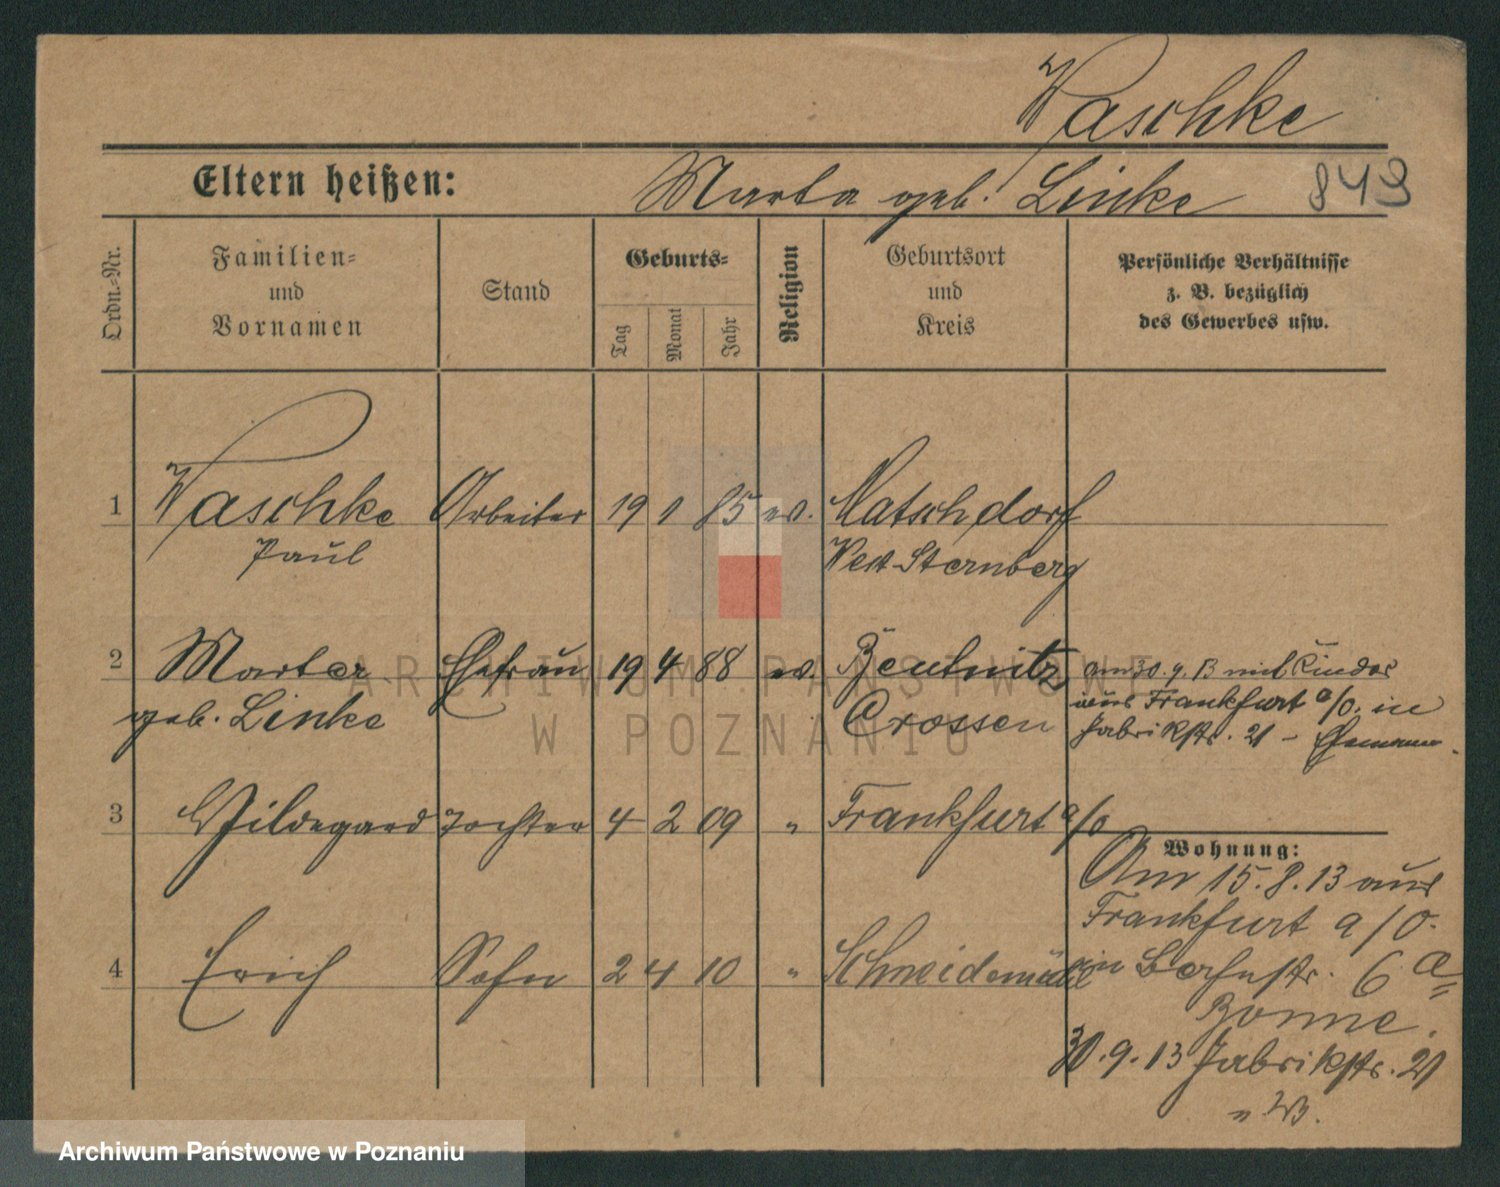 Waschke
Eltern heißen:
Marta geb. Linke
849
Ordn.-Nr.
Familien-
und
Vornamen
Stand
Geburts-
Tag
Monat
Jahr
Religion
Geburtsort
und
Kreis
Persönliche Verhältnisse
z. B. bezüglich
des Gewerbes usw.
1 Waschke Arbeiter 19 1 85 ev. Matschdorf
Paul West-Sternberg
2 Marta Ehefrau 19 4 88 ev. Beutnitz am 30.9.13 mit Kinder
geb. Linke Crossen aus Frankfurt a/O. in
Fabrikstr. 21 - Ehemann.
3 Hildegard Tochter 4 2 09 " Frankfurt a/O
Wohnung:
Am 15.8.13 aus
Frankfurt a/O.
4 Erich Sohn 2 4 10 " Schneidemühl
in 6a
30.9.13 Fabrikstr. 21
ARCHIWUM PAŃSTWOWE
W POZNANIU
Archiwum Państwowe w Poznaniu